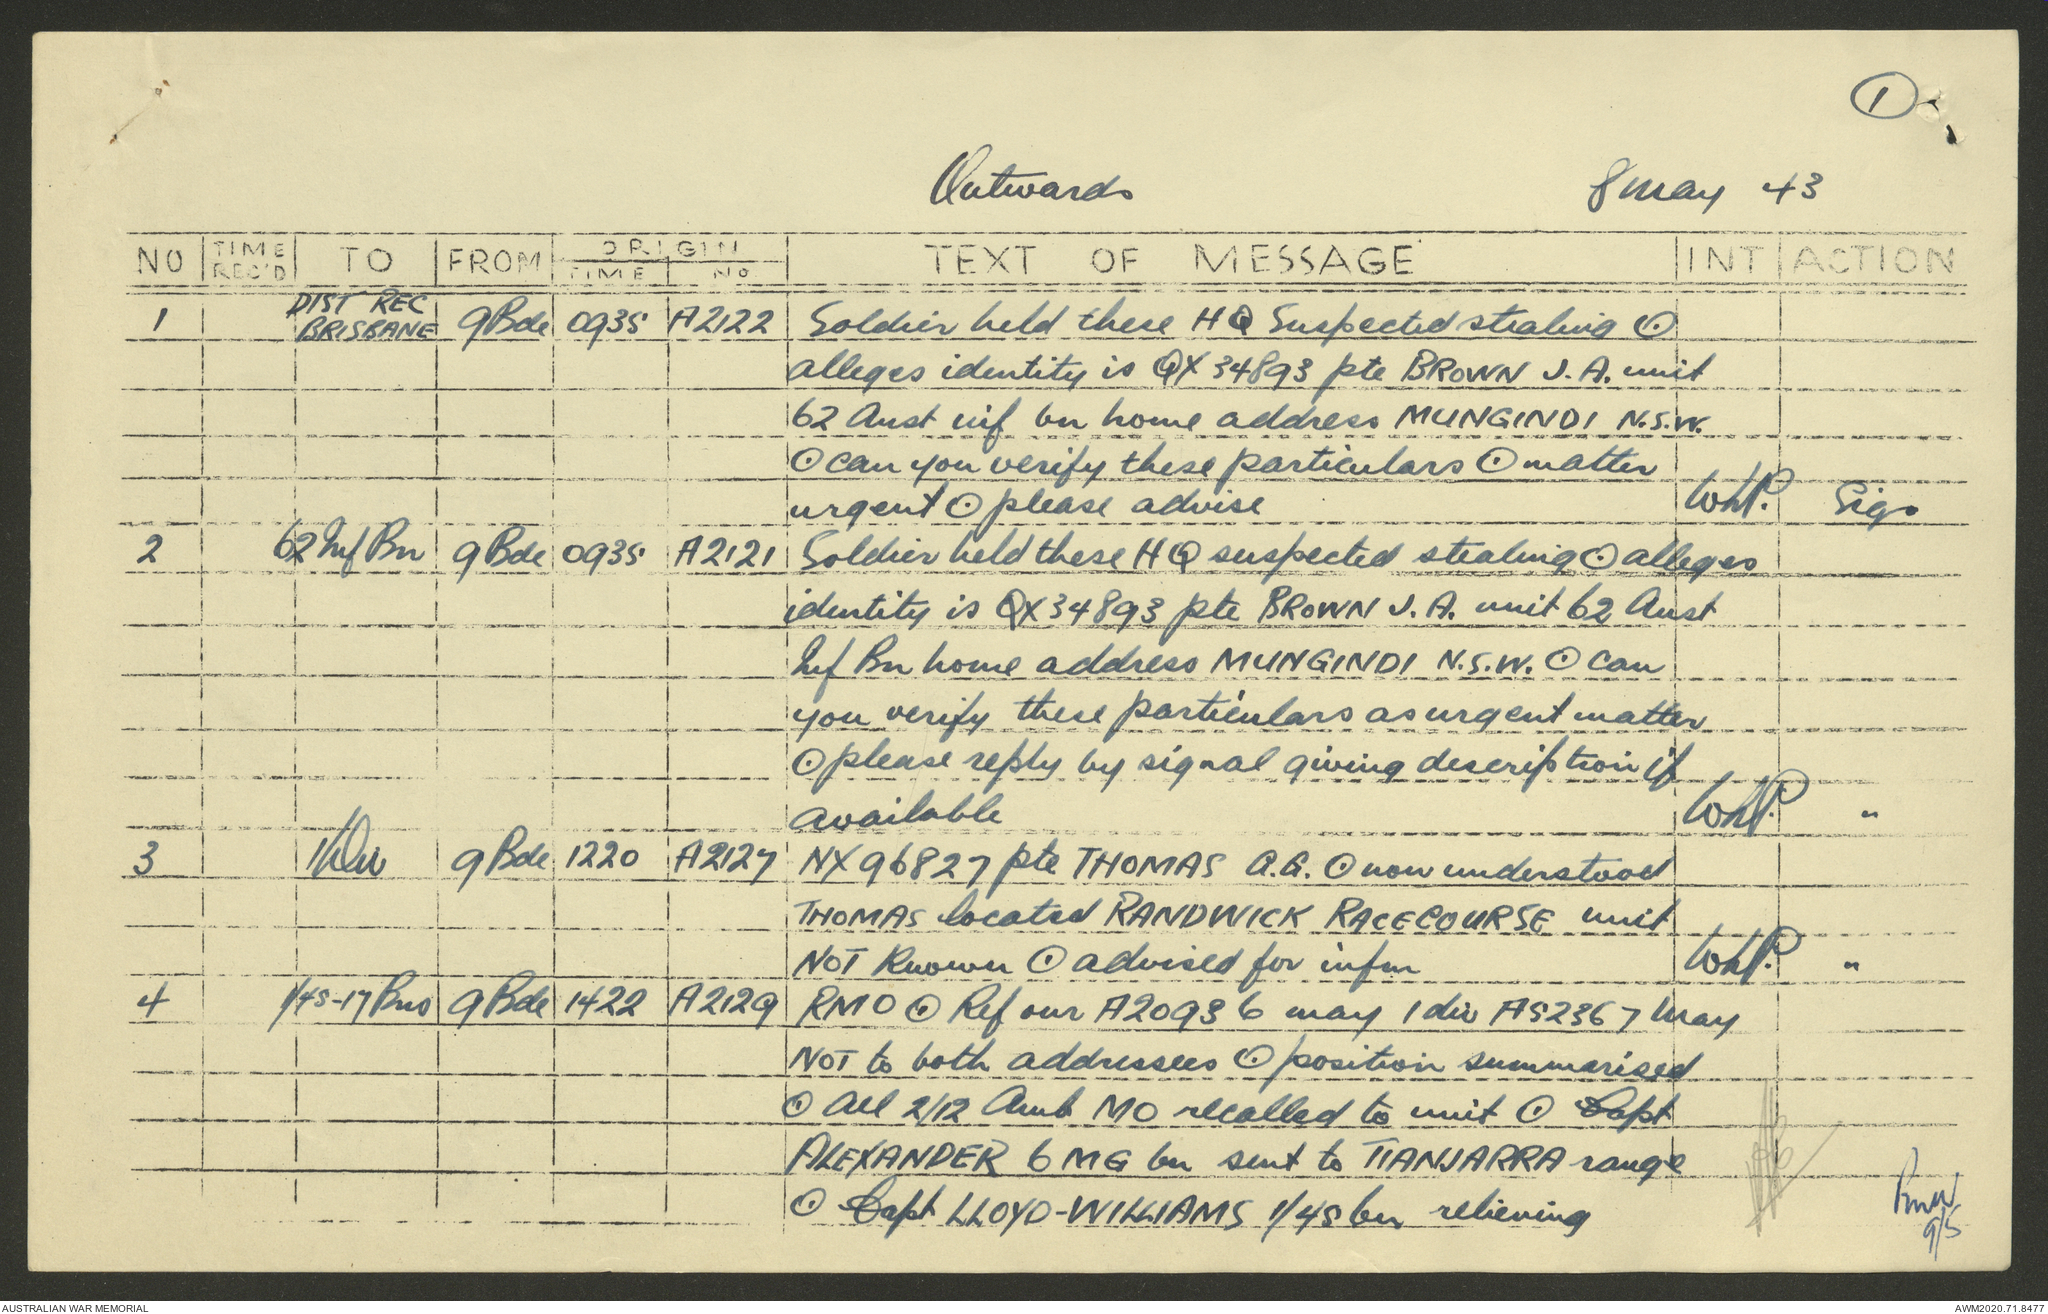 1
Outwards 8 May 43
NO TIME REC'D TO FROM ORIGIN TIME No TEXT OF MESSAGE INT ACTION
1 DIST REC BRISBANE 9 Bde 0935 A2122 Soldier held these HQ Suspected stealing ⊙
alleges identity is QX34893 pte BROWN J.A. unit
62 Aust inf bn home address MUNGINDI N.S.W.
⊙ can you verify these particulars ⊙ matter
urgent ⊙ please advise WhP. Sigs
2 62 Inf Bn 9 Bde 0935 A2121 Soldier held these HQ suspected stealing ⊙ alleges
identity is QX34893 pte BROWN J.A. unit 62 Aust
Inf Bn home address MUNGINDI N.S.W. ⊙ can
you verify these particulars as urgent matter
⊙ please reply by signal giving description if
available WhP. "
3 1 Div 9 Bde 1220 A2127 NX96827 pte THOMAS A.G. ⊙ now understood
THOMAS located RANDWICK RACECOURSE unit
NOT known ⊙ advised for infm WhP. "
4 1/45-17 Bns 9 Bde 1422 A2129 RMO ⊙ Ref our A2093 6 may 1 div AS2367 May
NOT to both addressees ⊙ position summarised
⊙ All 2/12 Amb MO recalled to unit ⊙ Capt
ALEXANDER 6 MG bn sent to TIANJARRA range
⊙ Capt LLOYD-WILLIAMS 1/45 bn relieving
9/5
AUSTRALIAN WAR MEMORIAL AWM2020.71.8477